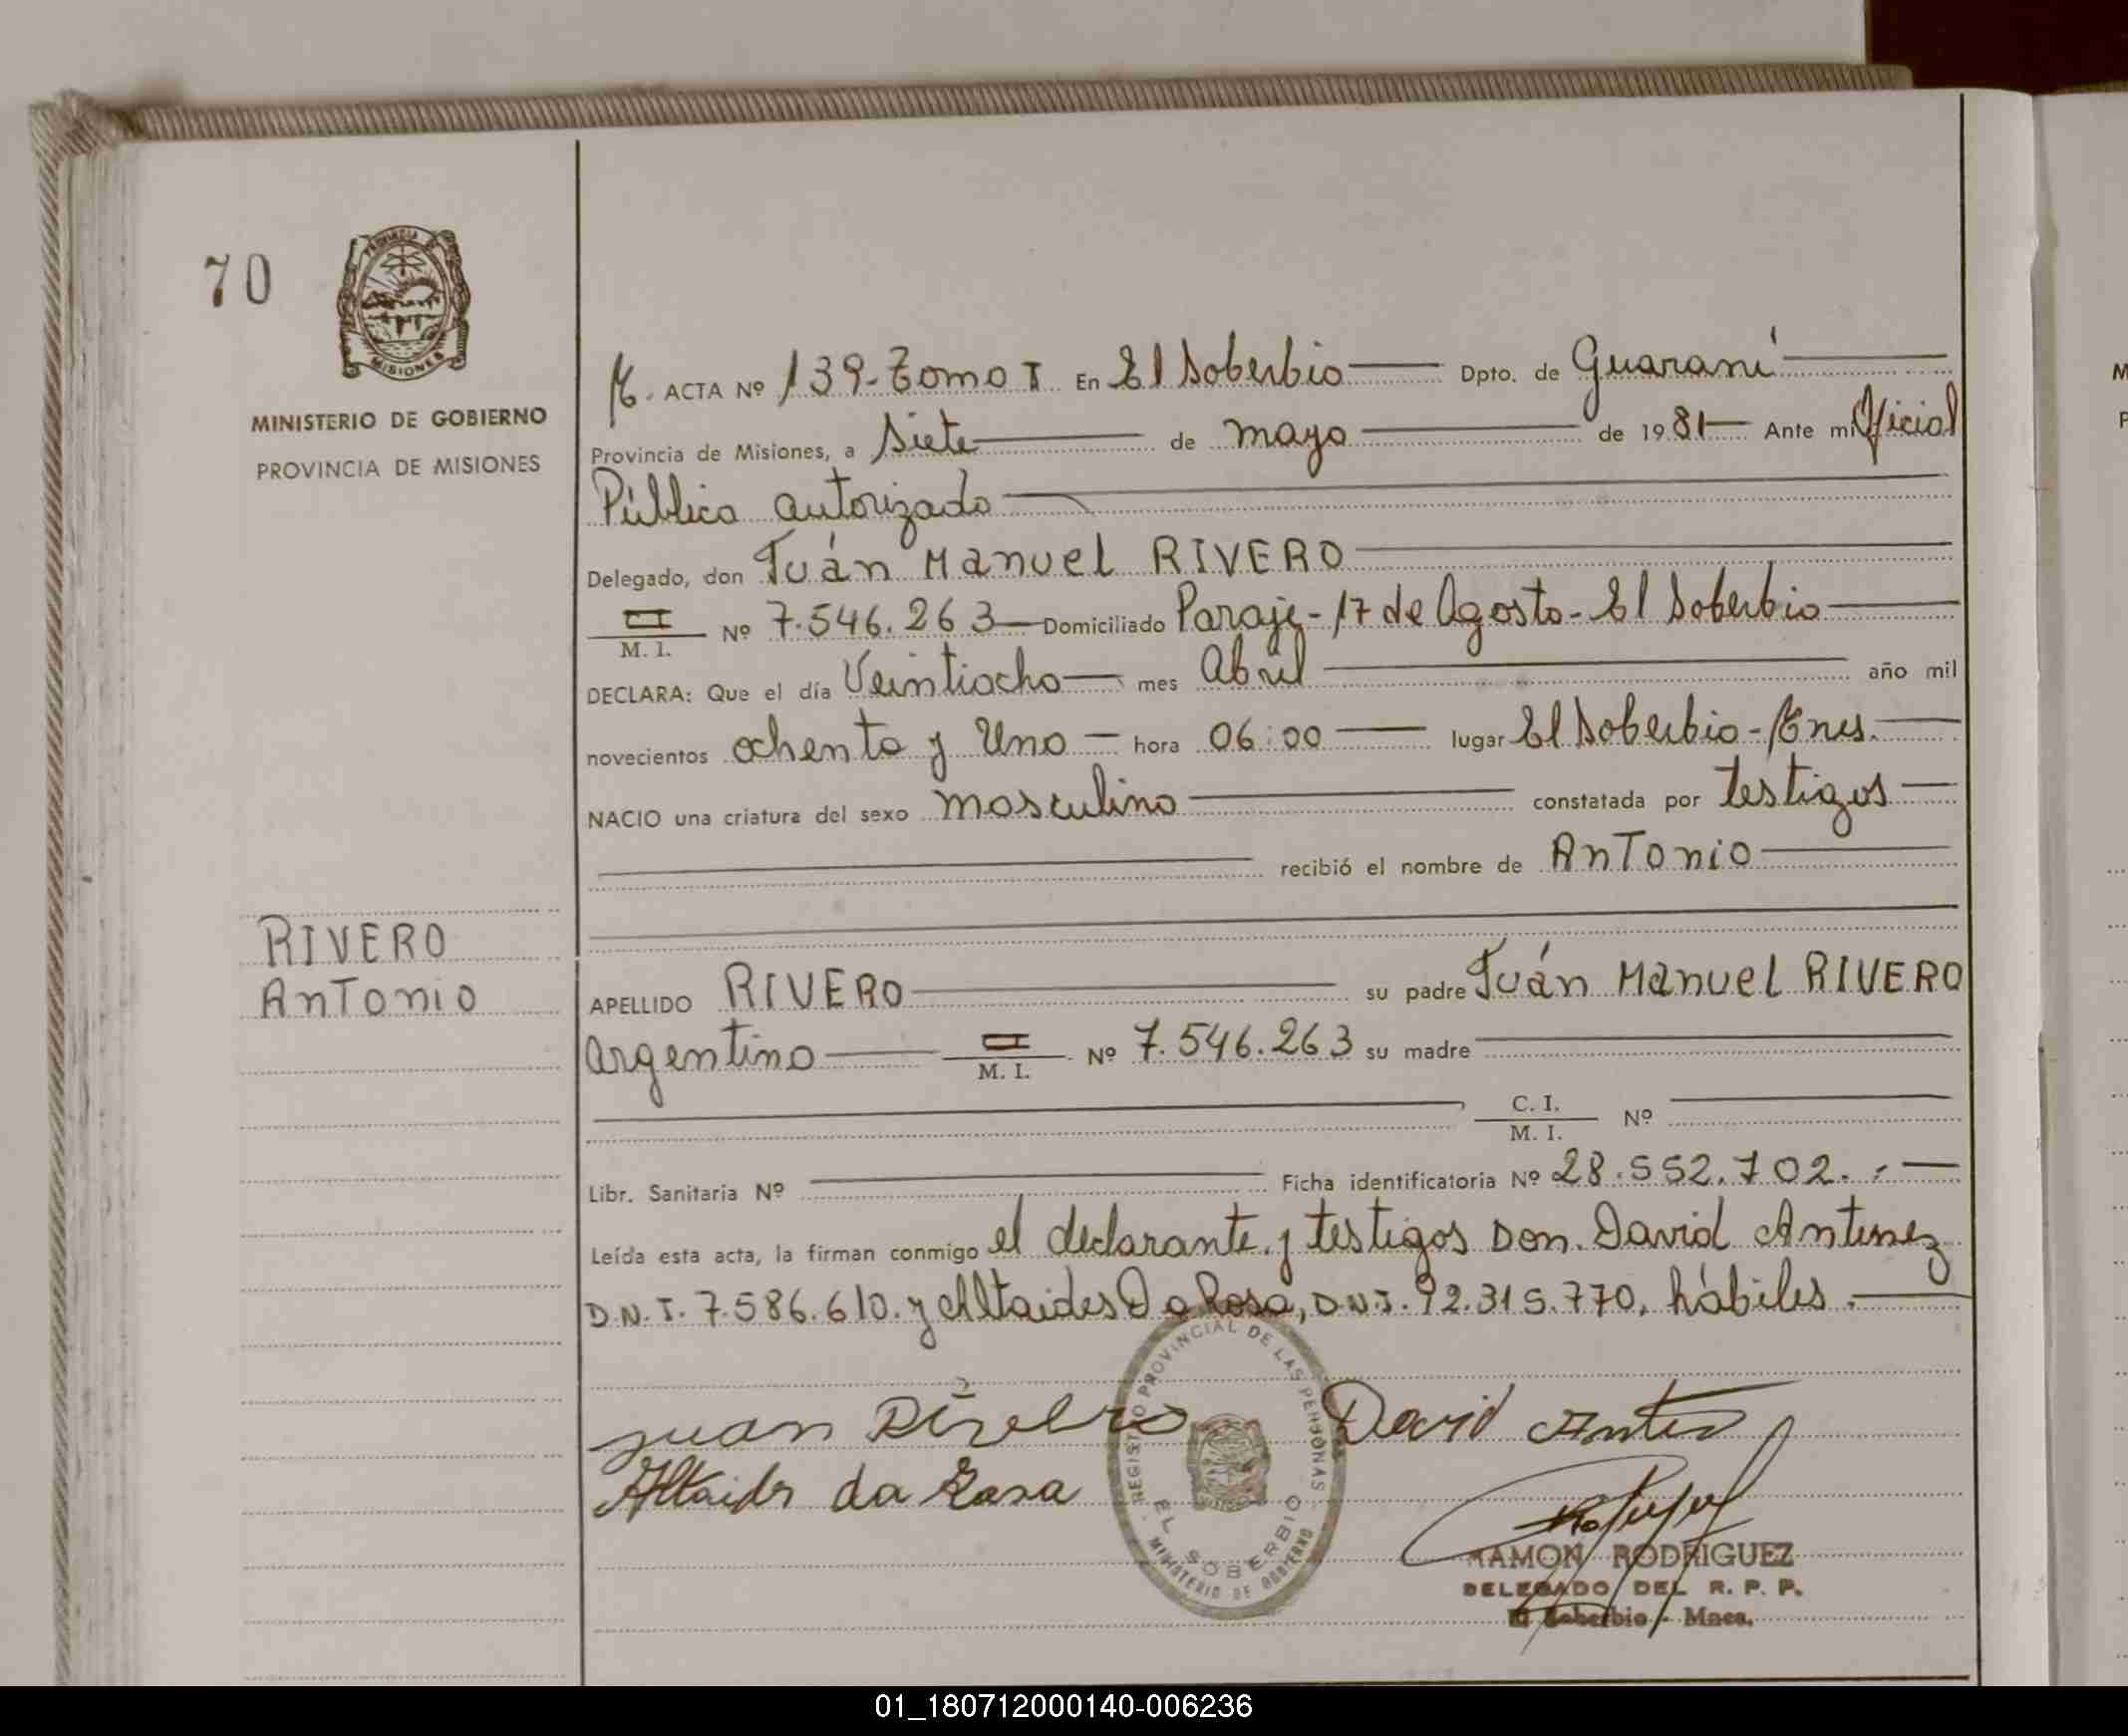 70
PROVINCIA DE
MISIONES
MINISTERIO DE GOBIERNO
PROVINCIA DE MISIONES
RIVERO
AnTonio
M. ACTA Nº 139-Tomo I En El Soberbio Dpto. de Guaraní
Provincia de Misiones, a Siete de mayo de 1981 Ante mi Oficial
Público autorizado
Delegado, don Juán Manuel RIVERO
M. I. Nº 7.546.263 Domiciliado Paraje-17 de Agosto-El Soberbio
DECLARA: Que el día Veintiocho mes Abril año mil
novecientos ochenta y Uno hora 06:00 lugar El Soberbio-Mnes.
NACIO una criatura del sexo masculino constatada por testigos
recibió el nombre de AnTonio
APELLIDO RIVERO su padre Juán Manuel RIVERO
argentino M. I. Nº 7.546.263 su madre
C. I.
M. I. Nº
Libr. Sanitaria Nº Ficha identificatoria Nº 28.552.702.-
Leída esta acta, la firman conmigo el declarante y testigos Don. David Antunez
D.N.I. 7.586.610. y Altaides Da Rosa, D.N.I. 92.315.770, hábiles.
juan Rivero David
da Rosa
REGISTRO PROVINCIAL DE LAS PERSONAS
EL SOBERBIO
MINISTERIO DE GOBIERNO
RAMON RODRIGUEZ
DELEGADO DEL R. P. P.
El Soberbio - Mnes.
01_180712000140-006236